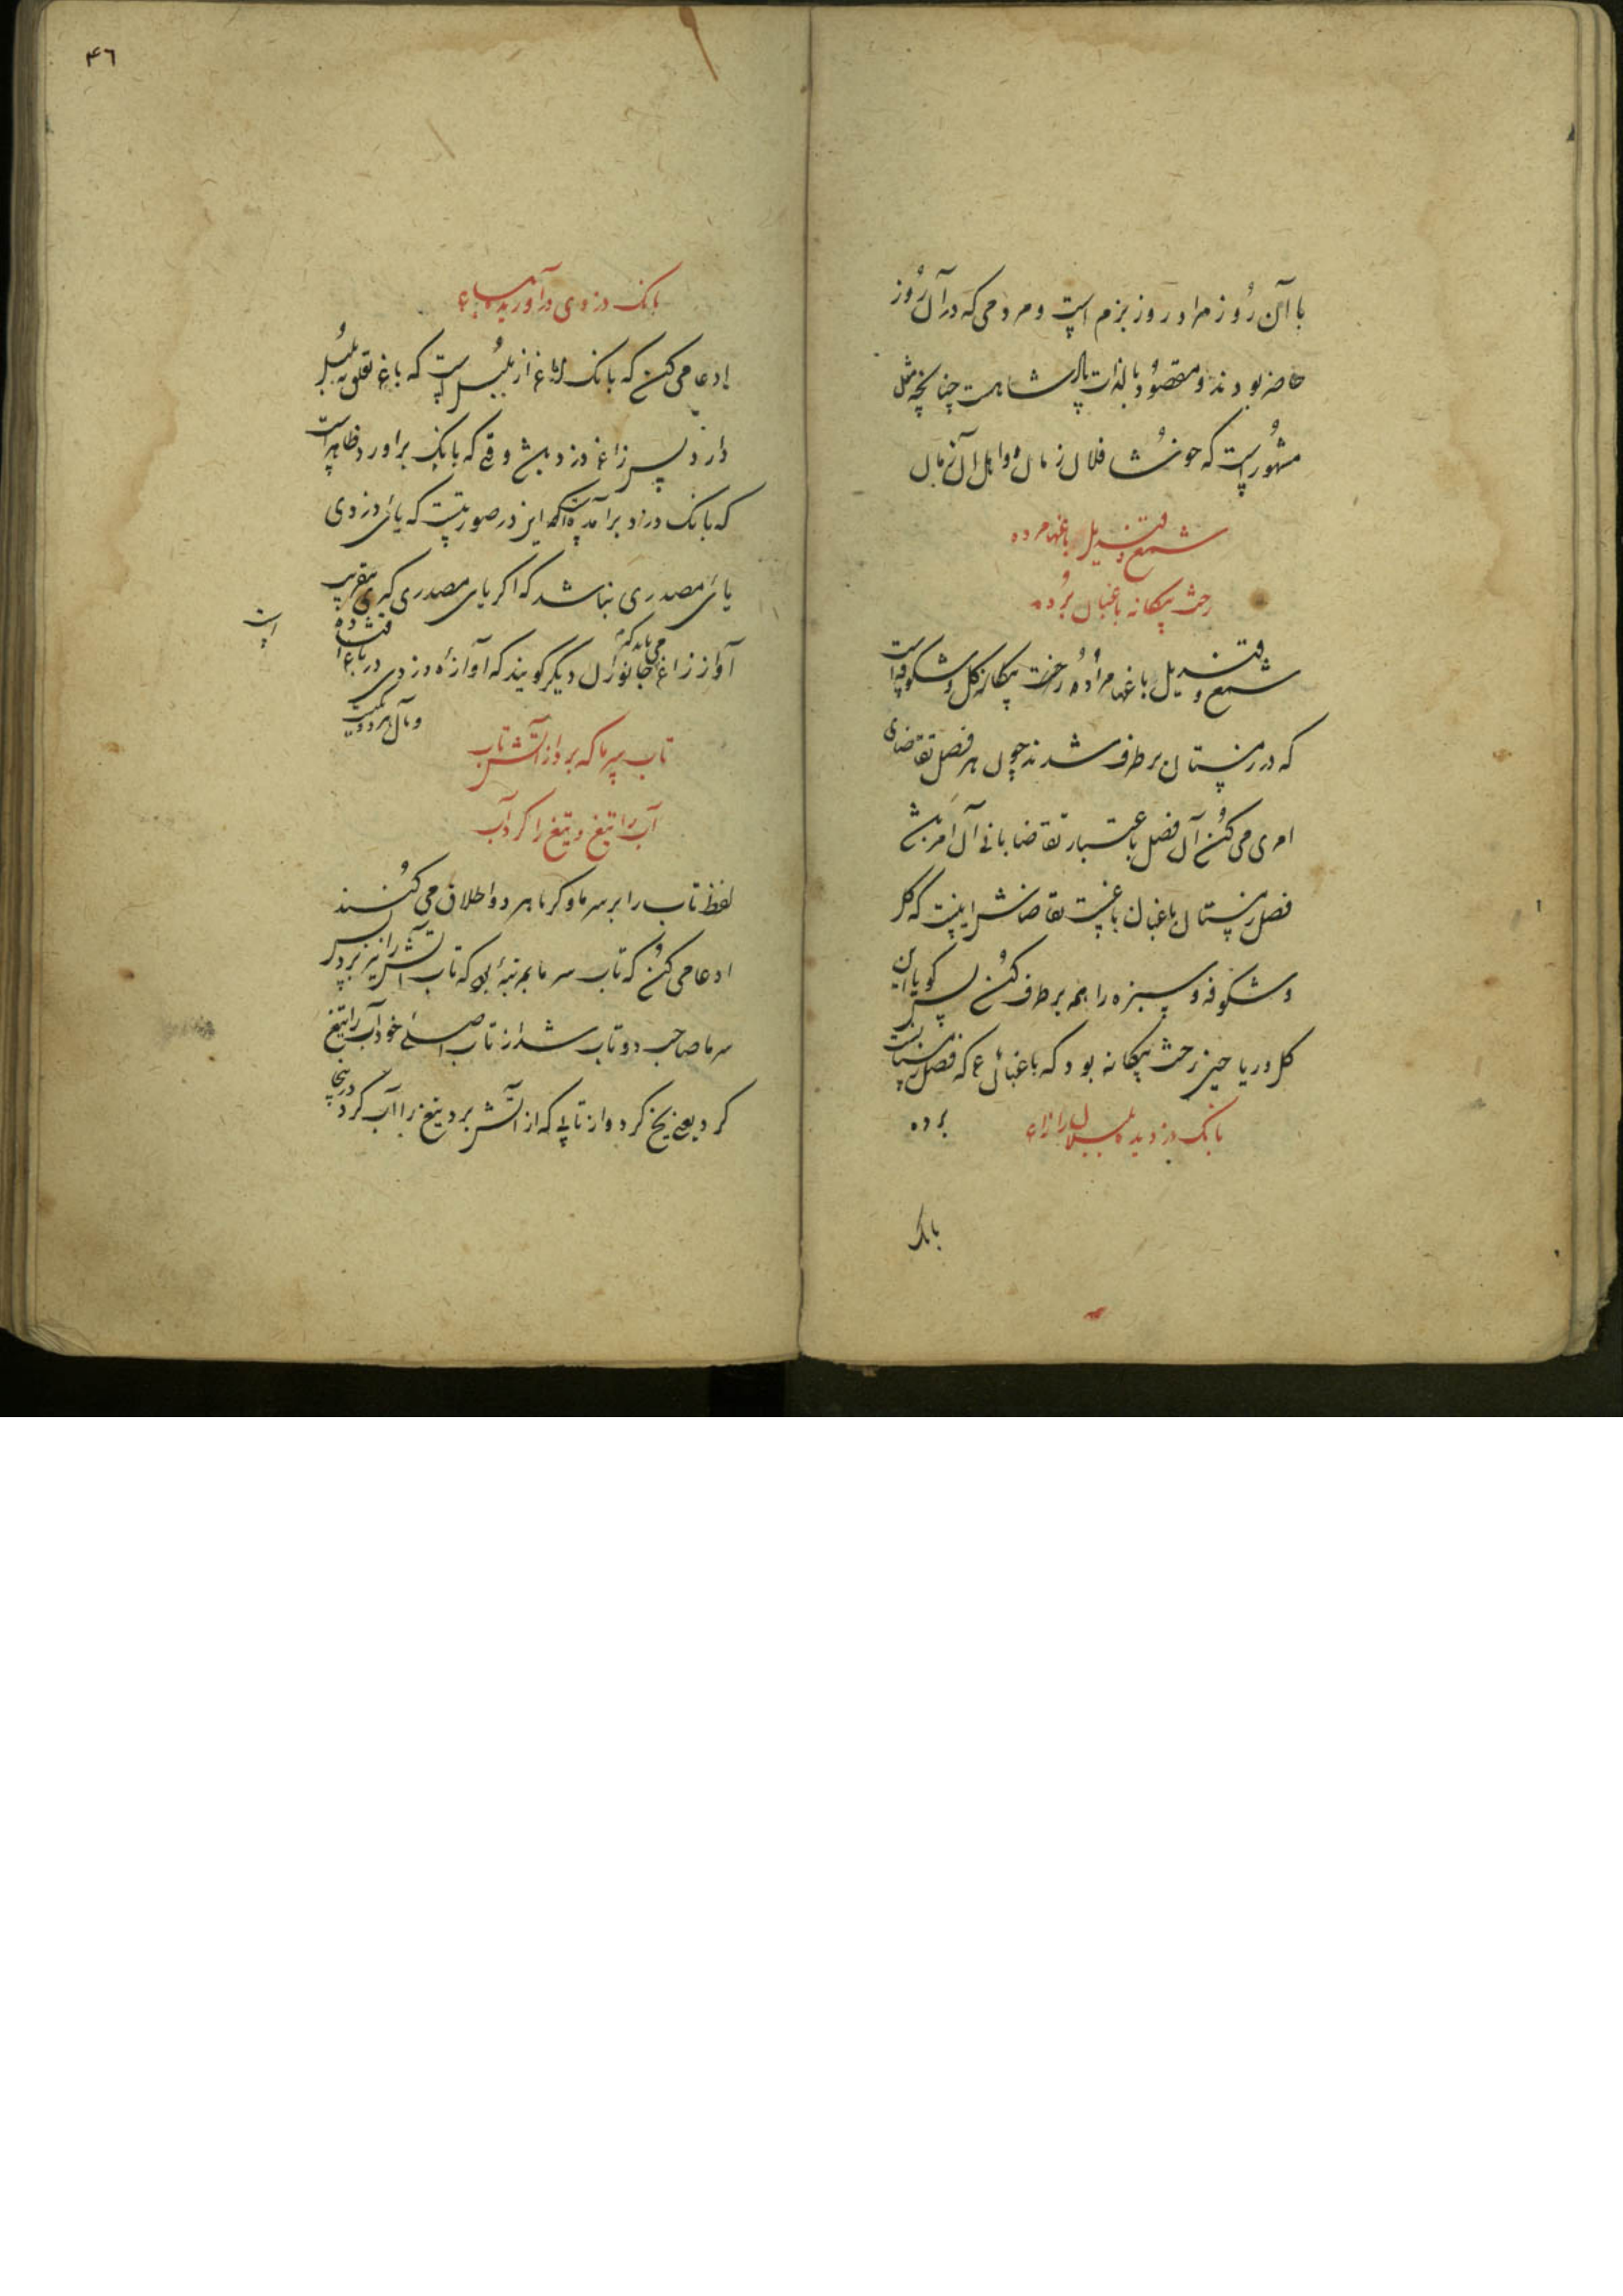 با آن روز مراد روز بزم است و مردمی که در آن روز
حاضر بودند و مقصود بالذات پادشاهست چنانچه مثل
مشهور است که خوشا فلان زمان و اهل آن زمان
شمع و قندیل باغها مرده
رخت بیگانه باغبان برده
شمع و قندیل باغها مرده رخت بیگانه گل و شکوفه است
که در زمستان برطرف شدند چون هر فصل تقاضای
امری می‌کند آن فصل باعتبار تقاضا بانی آن امر باشد
فصل زمستان باغبان باغیست تقاضاش اینست که گل
و شکوفه و سبزه را همه برطرف کند پس گویا این
گل و ریاحین رخت بیگانه بود که باغبانی که فصل زمستانست
برده
بانگ دزدیده بلبلان را زاغ
بانگ
۴۶
بانگ دزدی درآوریده بباغ
ادعا می‌کند که بانگ زاغ از بلبل است که باغ تعلق به بلبل
دارد پس زاغ دزد باشد وقتی که بانگ برآورد ظاهر است
که بانگ دزد برآمده این در صورتیست که یای دزدی
یای مصدری نباشد که اگر یای مصدری که بتقریب
آواز زاغ جانوران دیگر گویند که آوازه دزدی در باغ افتاده
است
و مآل هر دو یکیست
تاب سرما که برد از آتش تاب
آب را تیغ و تیغ را کرد آب
لفظ تاب را بر سرما و گرما هر دو اطلاق می‌کنند پس
ادعا می‌کند که تاب سرما بمرتبهٔ بود که تاب آتش را نیز برد پس
سرما صاحب دو تاب شد از تاب اصلی خود آب را تیغ
کرد یعنی یخ کرد و از تابی که از آتش برد تیغ را آب کرد درینجا